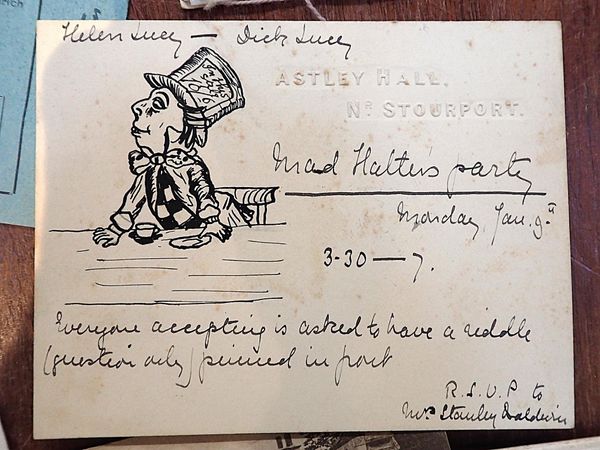 Helen Lucy — Dick Lucy
ASTLEY HALL,
Nr STOURPORT.
Mad Hatter's party
Monday Jan. 9th
3-30 — 7.
Everyone accepting is asked to have a riddle
(question only) pinned in front
R.S.V.P to
Mrs Stanley Baldwin